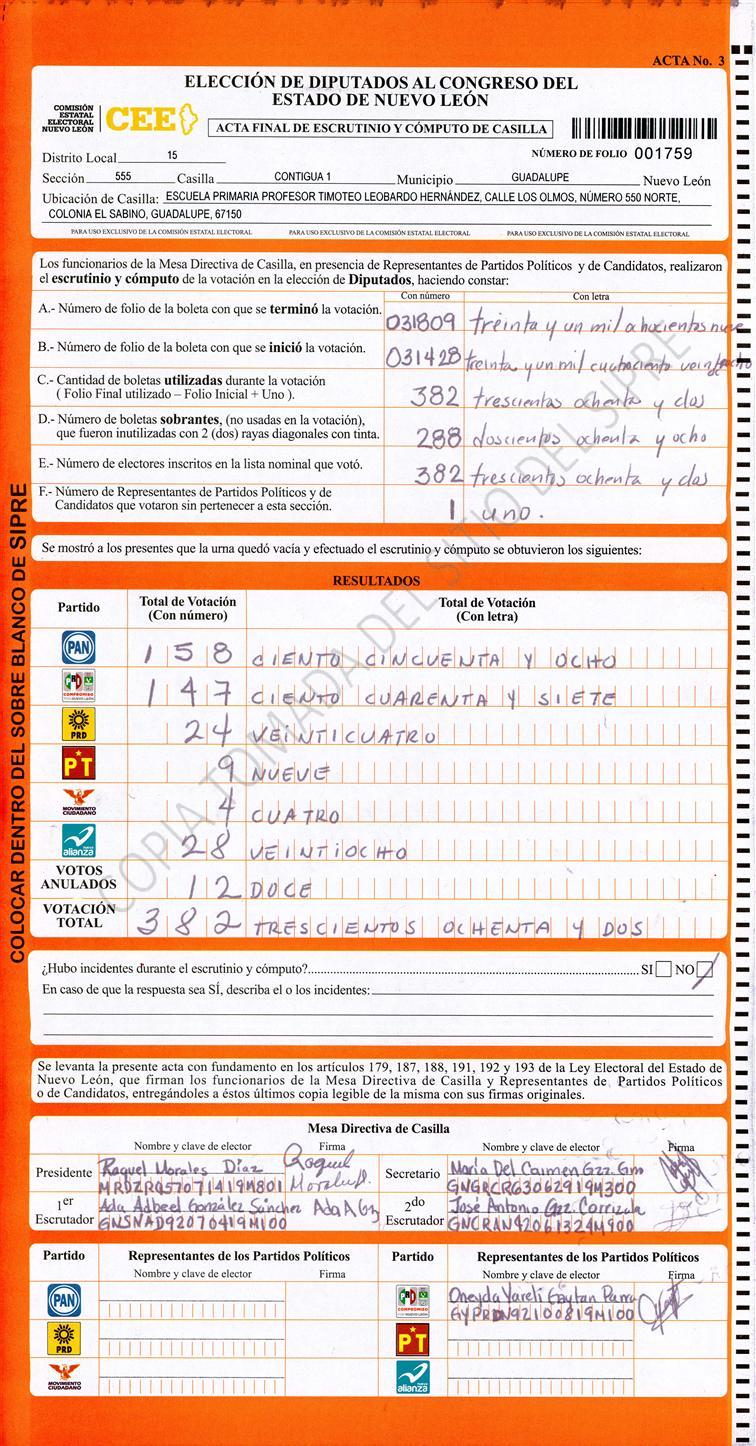 ACTA No. 3
ELECCIÓN DE DIPUTADOS AL CONGRESO DEL
ESTADO DE NUEVO LEÓN
COMISIÓN
ESTATAL
ELECTORAL
NUEVO LEÓN
CEE
ACTA FINAL DE ESCRUTINIO Y CÓMPUTO DE CASILLA
Distrito Local 15
NÚMERO DE FOLIO 001759
Sección 555 Casilla CONTIGUA 1 Municipio GUADALUPE Nuevo León
Ubicación de Casilla: ESCUELA PRIMARIA PROFESOR TIMOTEO LEOBARDO HERNÁNDEZ, CALLE LOS OLMOS, NÚMERO 550 NORTE,
COLONIA EL SABINO, GUADALUPE, 67150
PARA USO EXCLUSIVO DE LA COMISIÓN ESTATAL ELECTORAL PARA USO EXCLUSIVO DE LA COMISIÓN ESTATAL ELECTORAL PARA USO EXCLUSIVO DE LA COMISIÓN ESTATAL ELECTORAL
Los funcionarios de la Mesa Directiva de Casilla, en presencia de Representantes de Partidos Políticos y de Candidatos, realizaron
el escrutinio y cómputo de la votación en la elección de Diputados, haciendo constar:
Con número Con letra
A.- Número de folio de la boleta con que se terminó la votación. 031809 treinta y un mil ochocientos nueve
B.- Número de folio de la boleta con que se inició la votación. 031428 treinta y un mil cuatrociento veintiocho
C.- Cantidad de boletas utilizadas durante la votación
( Folio Final utilizado – Folio Inicial + Uno ). 382 trescientas ochenta y dos
D.- Número de boletas sobrantes, (no usadas en la votación),
que fueron inutilizadas con 2 (dos) rayas diagonales con tinta. 288 doscientos ochenta y ocho
E.- Número de electores inscritos en la lista nominal que votó. 382 trescientos ochenta y dos
F.- Número de Representantes de Partidos Políticos y de
Candidatos que votaron sin pertenecer a esta sección. 1 uno.
Se mostró a los presentes que la urna quedó vacía y efectuado el escrutinio y cómputo se obtuvieron los siguientes:
RESULTADOS
Partido Total de Votación (Con número) Total de Votación (Con letra)
PAN 158 CIENTO CINCUENTA Y OCHO
PRI COMPROMISO 147 CIENTO CUARENTA Y SIETE
PRD 24 VEINTICUATRO
PT 9 NUEVE
MOVIMIENTO CIUDADANO 4 CUATRO
nueva alianza 28 VEINTIOCHO
VOTOS ANULADOS 12 DOCE
VOTACIÓN TOTAL 382 TRESCIENTOS OCHENTA Y DOS
COPIA TOMADA DEL SITIO DEL SIPRE
COLOCAR DENTRO DEL SOBRE BLANCO DE SIPRE
¿Hubo incidentes durante el escrutinio y cómputo? SI NO
En caso de que la respuesta sea SÍ, describa el o los incidentes:
Se levanta la presente acta con fundamento en los artículos 179, 187, 188, 191, 192 y 193 de la Ley Electoral del Estado de
Nuevo León, que firman los funcionarios de la Mesa Directiva de Casilla y Representantes de Partidos Políticos
o de Candidatos, entregándoles a éstos últimos copia legible de la misma con sus firmas originales.
Mesa Directiva de Casilla
Nombre y clave de elector Firma Nombre y clave de elector Firma
Presidente Raquel Morales Diaz Raquel Morales D. Secretario Maria Del Carmen Gzz. Gno
MRDZRQ57071419M801 GNGRCR63062919M300
1er Escrutador Ada Adbeel González Sánchez Ada A Gnz 2do Escrutador Jose Antonio Gzz. Carrizala
GNSNAD92070419M100 GNCRAN42061324M900
Partido Representantes de los Partidos Políticos Partido Representantes de los Partidos Políticos
Nombre y clave de elector Firma Nombre y clave de elector Firma
PAN PRI COMPROMISO Oneyda Yareli Gaytan Parra
GYPRON92100819M100
PRD PT
MOVIMIENTO CIUDADANO nueva alianza